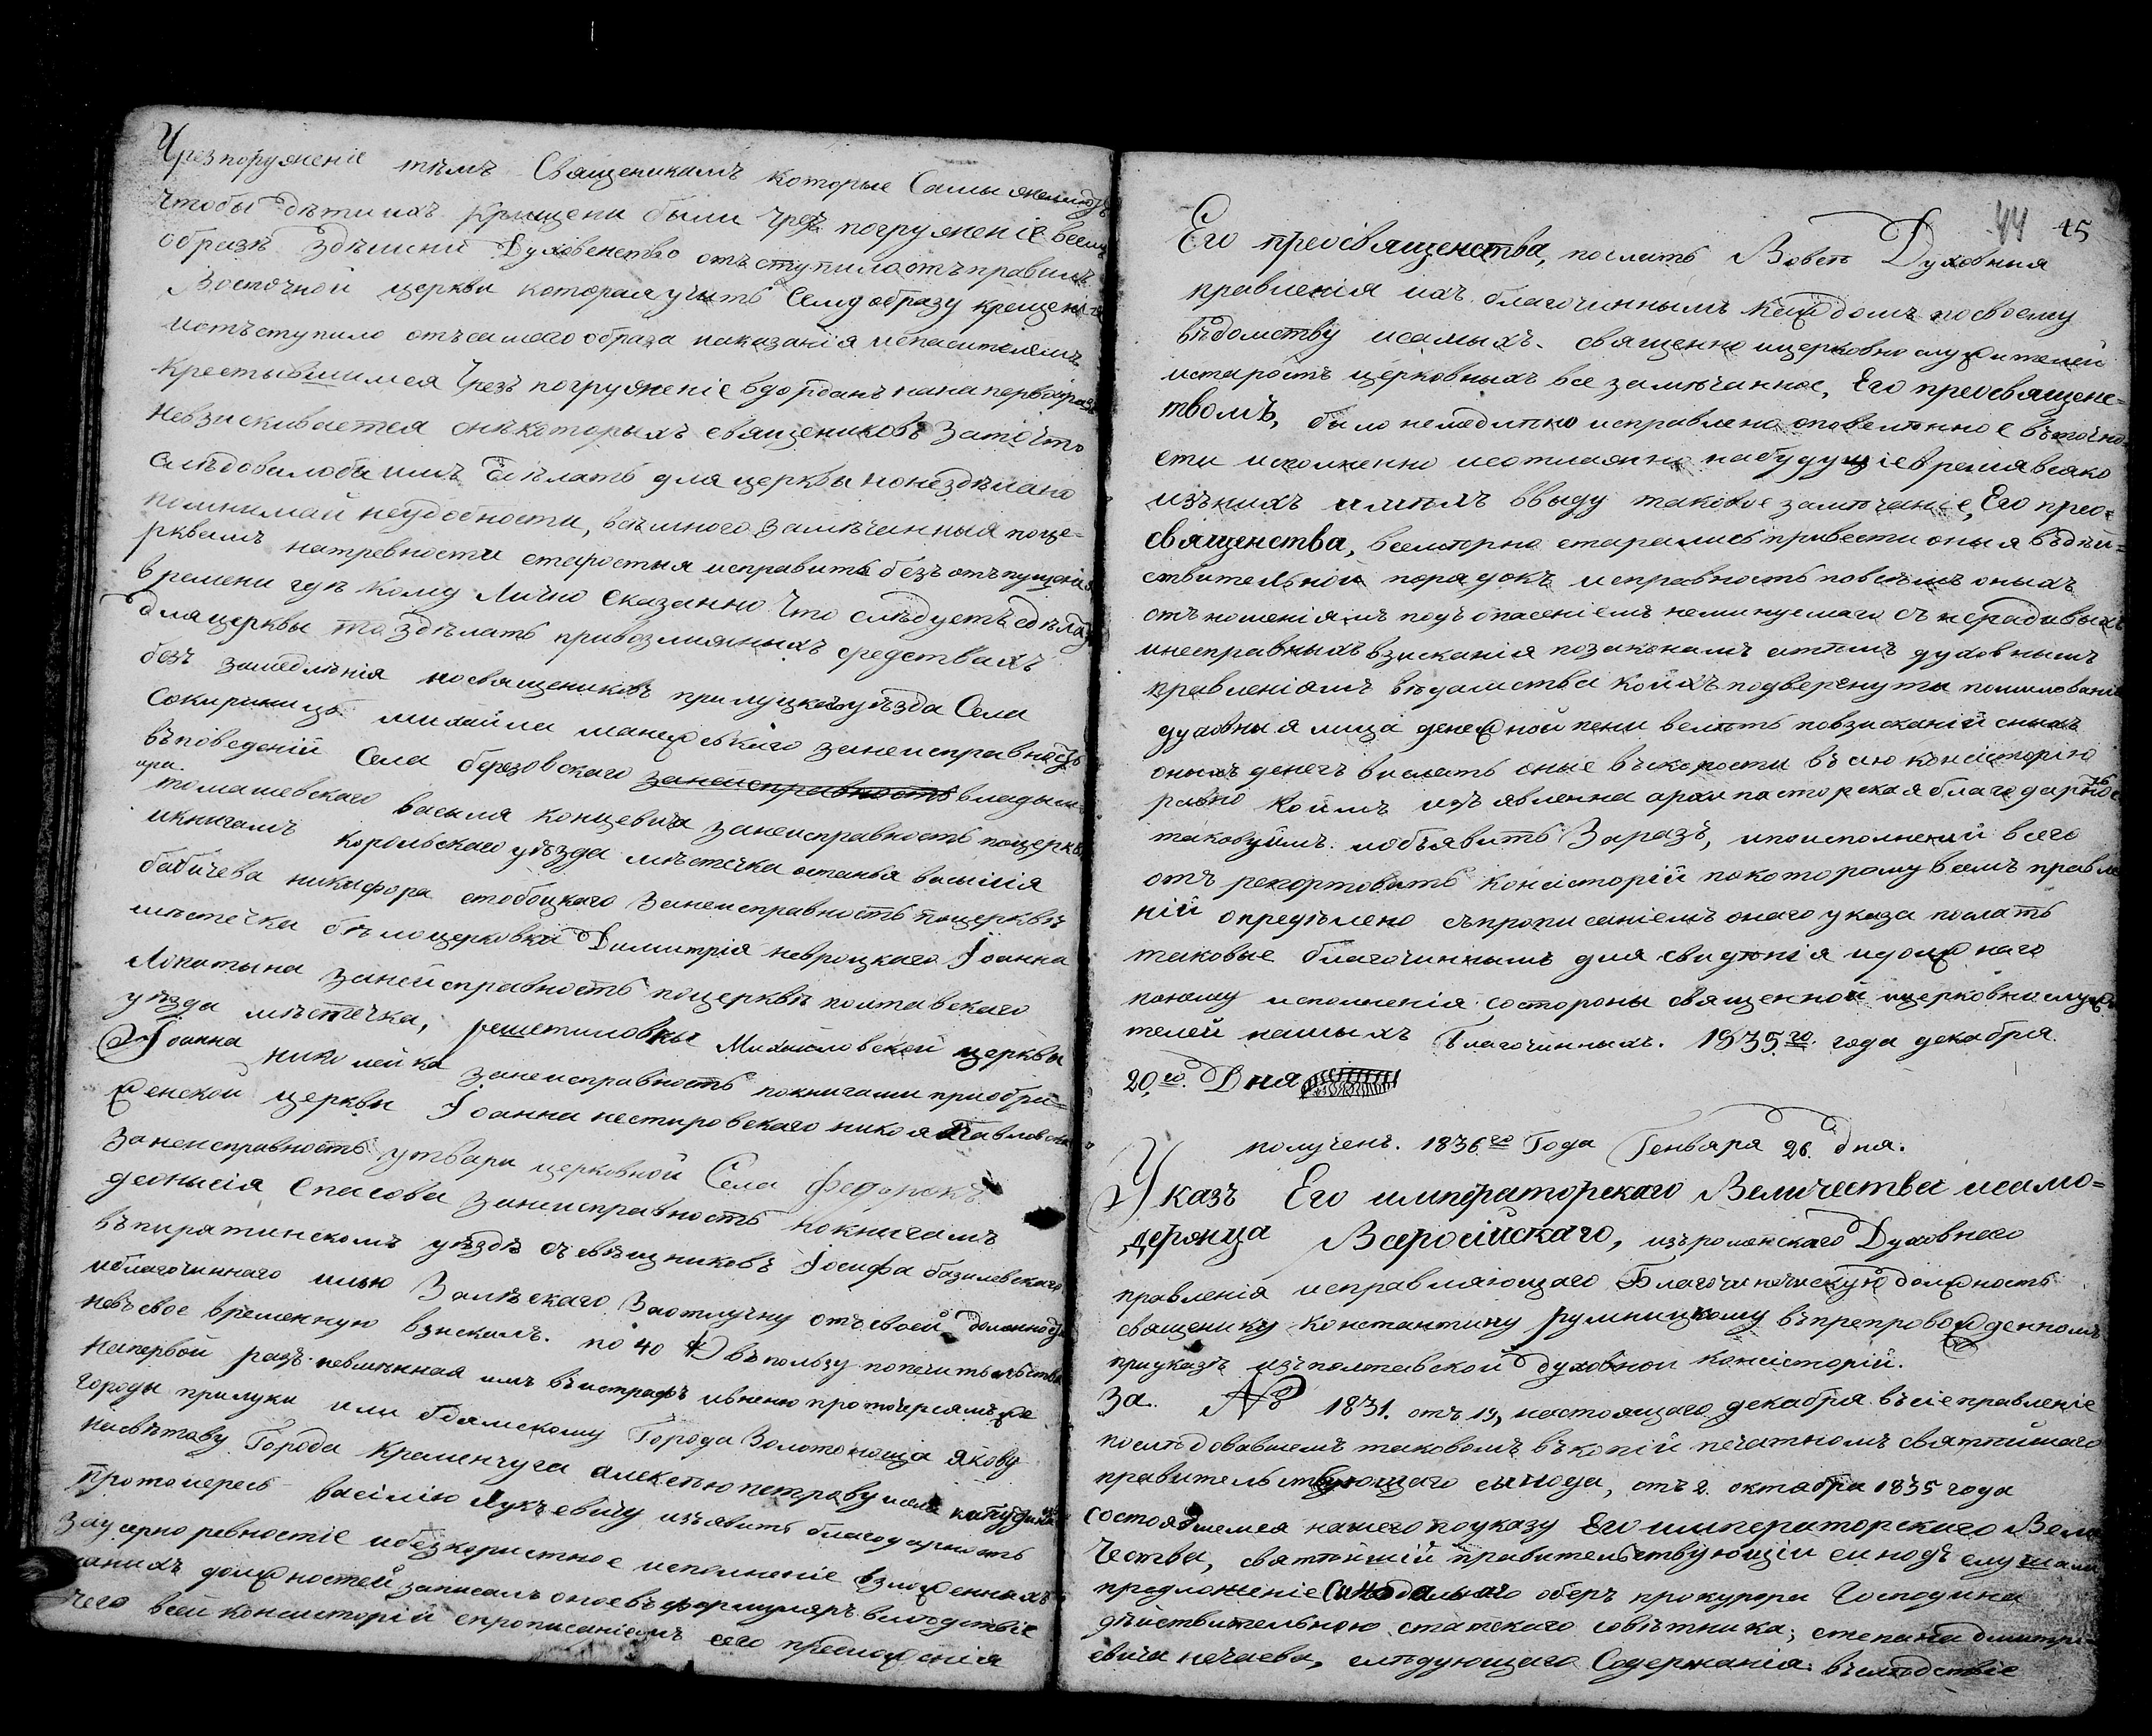 Чрезпогруженіе тѣмъ Священикамъ которые Самы
чтобы дѣти ихъ Крищени были чрезъ погруженіе
образѣ здѣшнии Духовенство отъступило отъ правилъ
Восточной церкви которая учитъ Сему образу крещенія
иотъступило отъсамаго образа показанія испасителемъ
Крестывшимся Чрезъ погруженіе вдордань
Невзискивается снѣкоторыхъ священиковъ Зато что
слѣдовалобы имъ Сдѣлать для церквы нонездѣлано
неудобности, всѣмного замѣчанныя поце-
рквамъ натребности старостыя исправить безъ отъпущенія
времени гдѣ Кому Лично Сказанно Что слѣдуетъ сдѣлать
дляцерквы то здѣлать привозможныхъ средствахъ
безъ замедленія носвящениковъ прилуцкого уѣзда Села
Сокиринецъ Михайла занеисправность
въповеденій Села березовскаго занеисправность владым
томашевскаго василя концевича занеисправность поцеркви
икнигамъ Корольскаго уѣзда мѣстечка остапья василія
бабичева никифора стобоцкаго занеисправность поцерквѣ
мѣстечка бѣлоцерковки Димитрія невроцкаго Іоанна
Лопатына занеисправность поцерквѣ полтавскаго
уѣзда мѣстечка, решетиловкы Михайловской церквы
Іоанна николейка занеисправность покнигами преобра=
женской церквы Іоанна нестеровскаго
занеисправность утвари церковной Села Федорокъ
деонисія Спасова занеисправность покнигамъ
въпирятинскомъ уѣздѣ съсвящниковъ Іосифа базилевскаго
иблагочиннаго илью Залѣскаго Заотлучку отъсвоей должности
невъсвое временную взискать. по 40 въпользу попечительства
напервой разъ невмѣнная имъ въштрафъ
города прилуки или Города Золотоноша Якову
Города Кременчуга алексѣю петрову
протоиерею василію Лукъевичу изъявить благодарность
заусерно ревностіе ибезкористное исполненіе взложенныхъ
нанихъ должностей записать оноевъформуляръ вслѣдствіе
чего всей консисторій спрописаніемъ сего предложенія
44 45
Его преосвященства, послать Вовсѣ Духовныя
правленія ихъ благочиннымъ каждомъ посвоему
вѣдомству исамыхъ священно ицерковно служителей
истаростъ церковныхъ все замѣчанное, Его преосвященс=
твомъ, было немедлѣнно исправлено оповелѣнное въточно-
сти исполненно неотложно набудущіевремявсяко
изънихъ имѣлъ ввыду таковое замѣчаніе, Его прео=
священства, всемѣрно старались привести оныя въдѣй=
ствительной порядокъ исправность повсѣмъ онымъ
отъношеніямъ подъ опасеніемъ неминуемаго съ нерадивыхъ
инесправныхъ взисканія позаконамъ атѣмъ духовнымъ
правленіямъ вѣдамства коихъ подвергнуты
духовныя лица денежной пени велѣть повзисканій оныхъ
оныхъ денегъ вислать оные въскорости въсію консисторію
равно Коймъ изъявленна архипасторская благодарность
таковымъ. иобъявить Заразъ, ипоисполненій всего
отъ репортовать консисторій покоторому всемъ правле
ній опредѣлено съпрописаніемъ онаго указа послать
таковые благочиннымъ для свидѣнія идолжнаго
поному исполненія состороны священной ицерковнослужи
телей нашыхъ Благочинныхъ. 1835.го года декабря
20.го Дня
получень. 1836го Года Генваря 26. дня.
Указъ Его императорскаго Величества исамо=
держца Всеросійскаго, изъроменскаго Духовнаго
правленія исправляющаго Благочиническую должность
священику Константину румницкому въпрепровожденномъ
приуказѣ изъполтавской духовной консисторій.
За. № 1831. отъ 19, настоящаго декабря въсіе правленіе
послѣдовавшемъ таковомъ въкопій печатномъ святѣйшаго
правительствующаго сынода, отъ 2. октября 1835 года
состоявшемся нашего поуказу Его императорскаго Вели
чества, святѣйшій правительствующій синодъ слушали
предложеніе Синодальнаго оберъ прокурора Господина
дѣйствительною статскаго совѣтника, степана дмитри-
евича нечаева, слѣдующаго Содержанія: въслѣдствіе